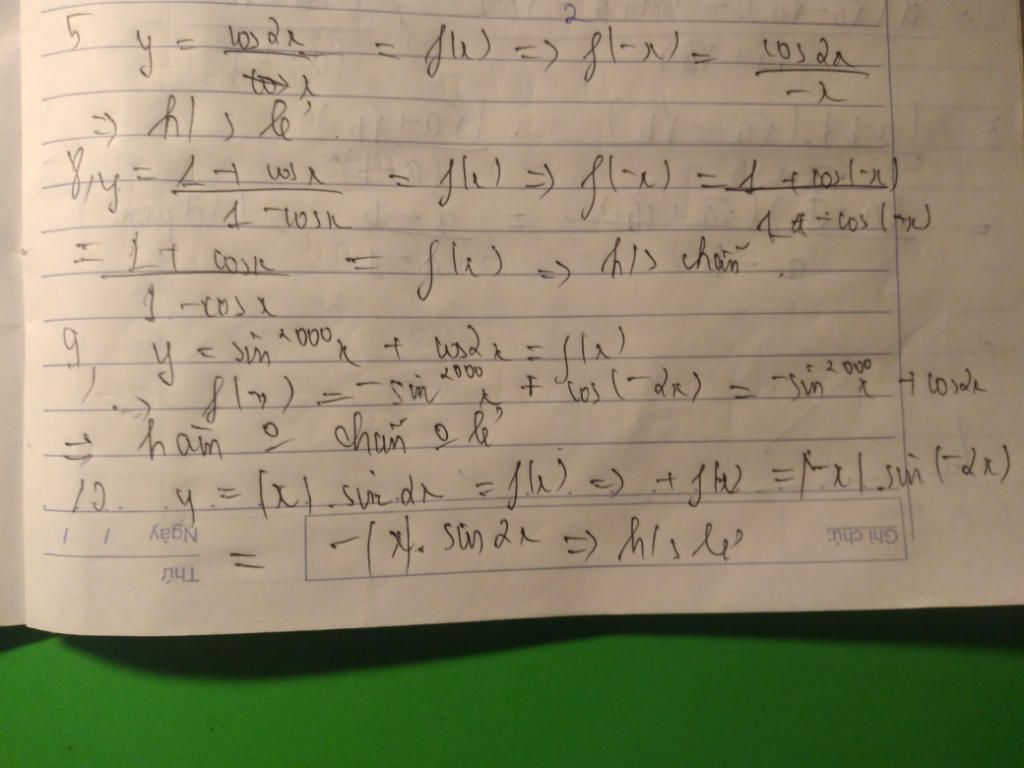 2
5 y = cos2x / x = f(x) => f(-x) = cos2x / -x
=> h/s lẻ
8, y = 1 + cosx / 1 - cosx = f(x) => f(-x) = 1 + cos(-x) / 1 - cos(-x)
= 1 + cosx / 1 - cosx = f(x) => h/s chẵn.
9, y = sin^2000 x + cos2x = f(x)
=> f(-x) = -sin^2000 x + cos(-2x) = -sin^2000 x + cos2x
=> hàm o chẵn o lẻ
12. y = |x|.sin2x = f(x) => + f(x) = |-x|.sin(-2x)
= -|x|.sin2x => h/s lẻ
Ghi chú:
Ngày
Thứ